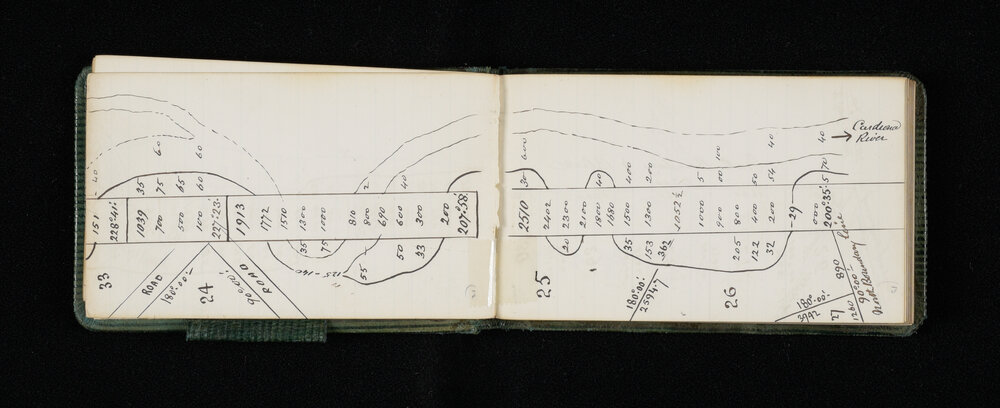 40
60
60
35
75
65
60
2
40
151
228°:41:
1039
700
500
100
227°:23:
1913
1772
1510
1300
1000
810
800
690
600
300
200
207°:58:
35
75
125-140
55
50
33
33
ROAD
180°:00:
24
90°:00:
ROAD
600
100
40
40
Cardrona
River
30
40
400
200
5
50
54
5
70
2510
2402
2300
2100
1800
1680
1500
1300
1052½
1000
900
800
600
200
-29
500
200°:35:
20
35
153
362
205
122
32
25
180°:00:
2594.7
26
180°:00:
3992
27
890
1260
90°:00:
North Boundary Line